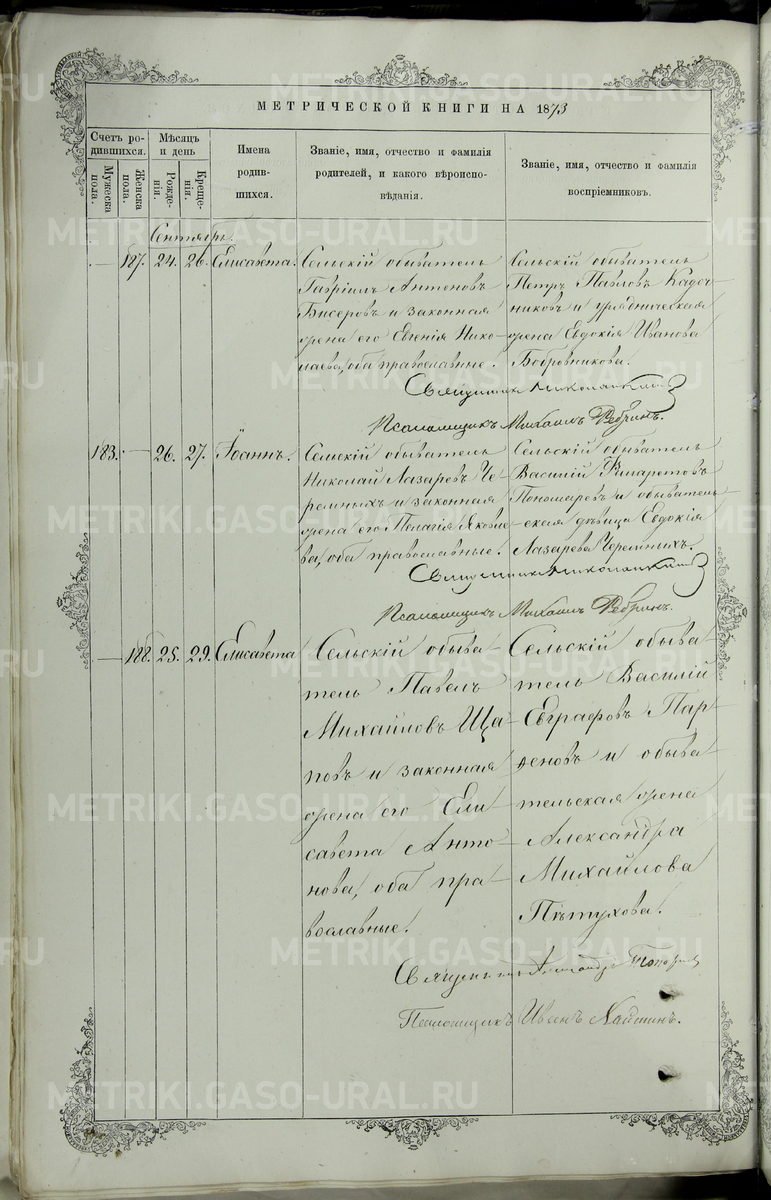 МЕТРИЧЕСКОЙ КНИГИ НА 1873
Счетъ ро-
дившихся.
Мужеска
пола.
Женска
пола.
Мѣсяцъ
и день
Рожде-
нія.
Креще-
нія.
Имена
родив-
шихся.
Званіе, имя, отчество и фамилія
родителей, и какого вѣроиспо-
вѣданія.
Званіе, имя, отчество и фамилія
воспріемниковъ.
Сентябрь.
— 187. 24. 26. Елисавета.
Сельскій обыватель
Гавріилъ Антоновъ
Бисеровъ и законная
жена его Евгенія Нико-
лаева, оба православные.
Сельскій обыватель
Петръ Павловъ Кадоч-
никовъ и урядническая
жена Евдокія Иванова
Бобровникова.
Священникъ
Псаломщикъ Михаилъ Ребринъ.
183. — 26. 27. Іоаннъ.
Сельскій обыватель
Николай Лазаревъ Че-
ремныхъ и законная
жена его Пелагія Яковле-
ва, оба православные.
Сельскій обыватель
Василій Филаретовъ
Пономаревъ и обыватель-
ская дѣвица Евдокія
Лазарева Черемныхъ.
Священникъ
Псаломщикъ Михаилъ Ребринъ.
— 188. 25. 29. Елисавета
Сельскій обыва-
тель Павелъ
Михайловъ Ща-
повъ и законная
жена его Ели-
савета Анто-
нова, оба пра-
вославные.
Сельскій обыва-
тель Василій
Евграфовъ Пар-
ѳеновъ и обыва-
тельская жена
Александра
Михайлова
Пѣтухова.
Священникъ Александръ
Псаломщикъ
METRIKI.GASO-URAL.RU